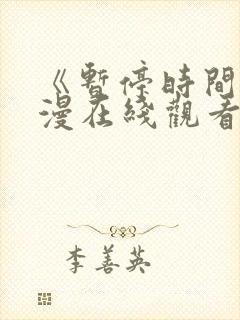 《暫停時間
漫在綫觀看
李善英